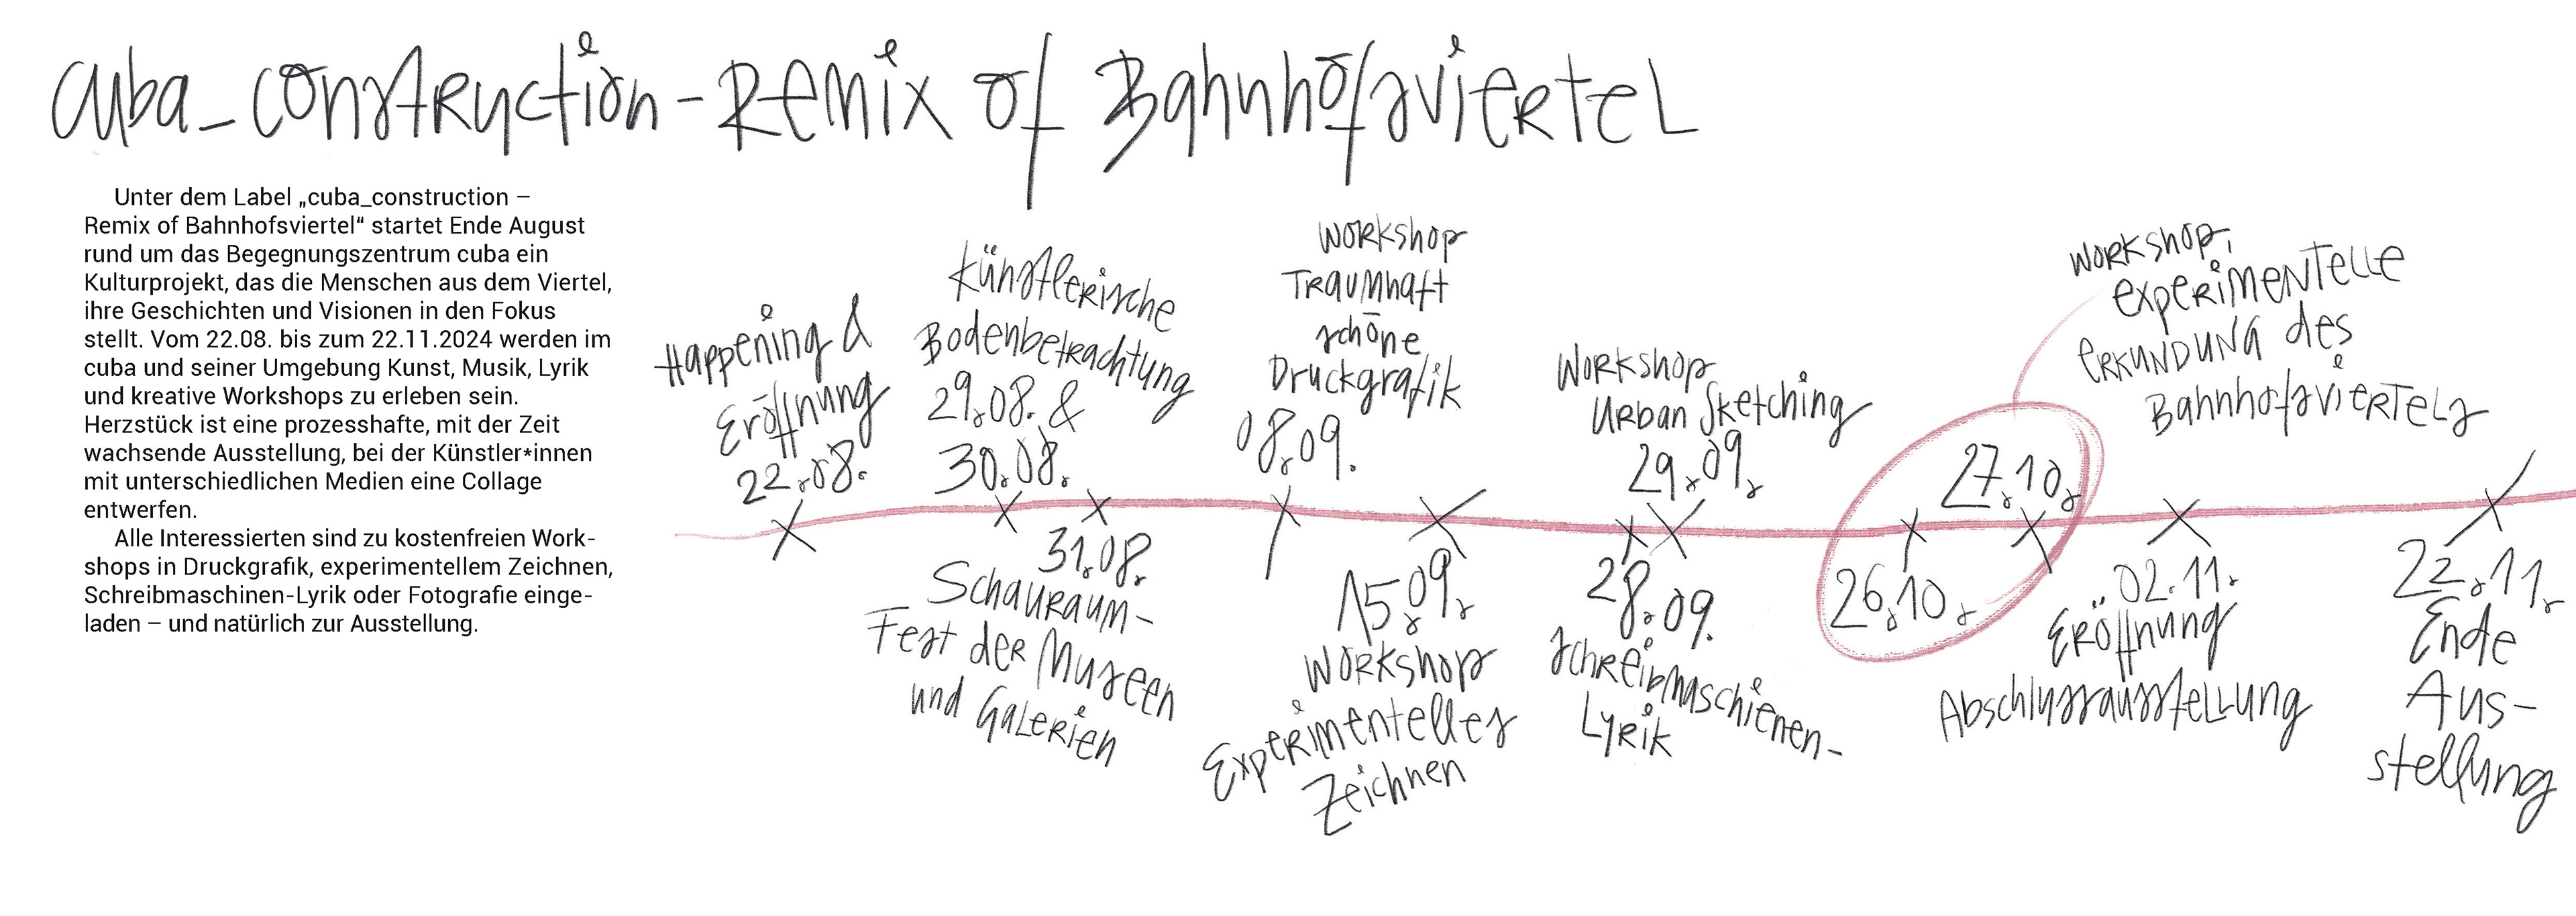 cuba_construction - Remix of Bahnhofsviertel
Unter dem Label „cuba_construction –
Remix of Bahnhofsviertel“ startet Ende August
rund um das Begegnungszentrum cuba ein
Kulturprojekt, das die Menschen aus dem Viertel,
ihre Geschichten und Visionen in den Fokus
stellt. Vom 22.08. bis zum 22.11.2024 werden im
cuba und seiner Umgebung Kunst, Musik, Lyrik
und kreative Workshops zu erleben sein.
Herzstück ist eine prozesshafte, mit der Zeit
wachsende Ausstellung, bei der Künstler*innen
mit unterschiedlichen Medien eine Collage
entwerfen.
Alle Interessierten sind zu kostenfreien Work-
shops in Druckgrafik, experimentellem Zeichnen,
Schreibmaschinen-Lyrik oder Fotografie einge-
laden – und natürlich zur Ausstellung.
Happening &
Eröffnung
22.08.
Künstlerische
Bodenbetrachtung
29.08. &
30.08.
31.08.
Schauraum-
Fest der Museen
und Galerien
Workshop
Traumhaft
schöne
Druckgrafik
08.09.
15.09.
Workshop
Experimentelles
Zeichnen
Workshop
Urban Sketching
29.09.
28.09.
Schreibmaschienen-
Lyrik
Workshop,
experimentelle
Erkundung des
Bahnhofsviertels
27.10.
26.10.
02.11.
Eröffnung
Abschlussausstellung
22.11.
Ende
Aus-
stellung